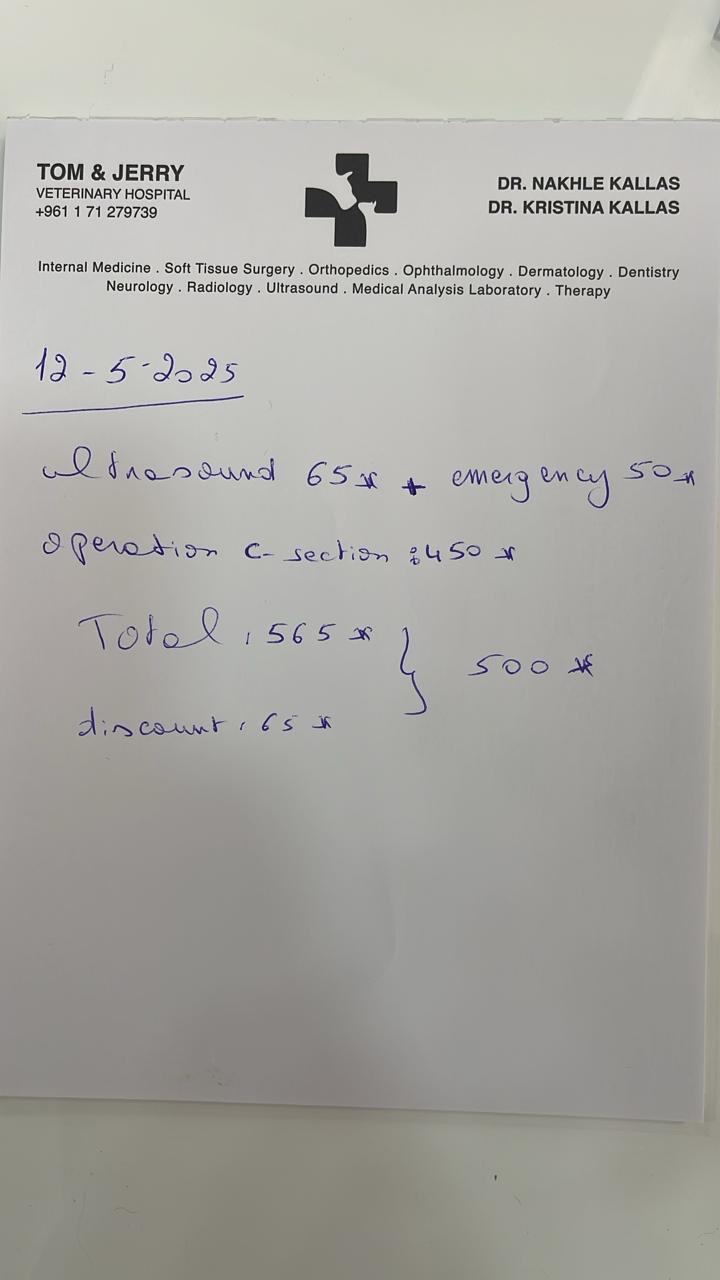 TOM & JERRY
VETERINARY HOSPITAL
+961 1 71 279739
DR. NAKHLE KALLAS
DR. KRISTINA KALLAS
Internal Medicine . Soft Tissue Surgery . Orthopedics . Ophthalmology . Dermatology . Dentistry
Neurology . Radiology . Ultrasound . Medical Analysis Laboratory . Therapy
12-5-2025
ultrasound 65* + emergency 50*
operation c-section : 450*
Total : 565* } 500*
discount : 65*